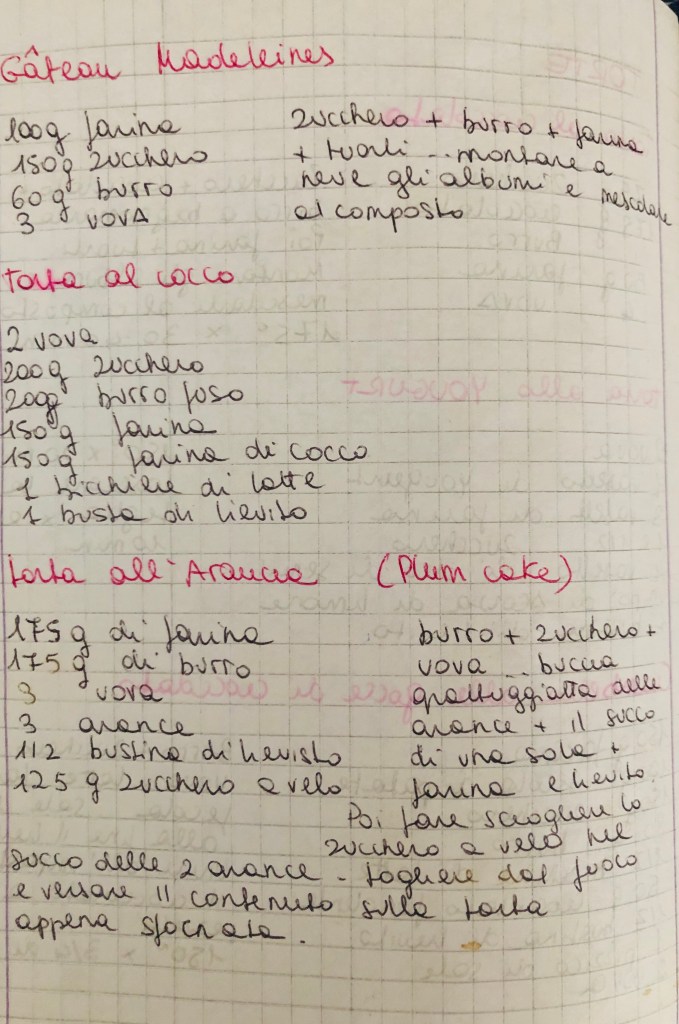 Gâteau Madeleines
100g farina
150g zucchero
60g burro
3 uova
zucchero + burro + farina
+ tuorli .. montare a
neve gli albumi e mescolare
al composto
Torta al cocco
2 uova
200g zucchero
200g burro fuso
150g farina
150g farina di cocco
1 bicchiere di latte
1 busta di lievito
Torta all'Arancia (Plum cake)
175 g di farina
175 g di burro
3 uova
3 arance
1/2 bustina di lievito
125 g zucchero a velo
burro + zucchero +
uova .. buccia
grattuggiatta delle
arance + il succo
di una sola +
farina e lievito.
Poi fare sciogliere lo
zucchero a velo nel
succo delle 2 arance - togliere dal fuoco
e versare il contenuto sulla torta
appena sfornata.